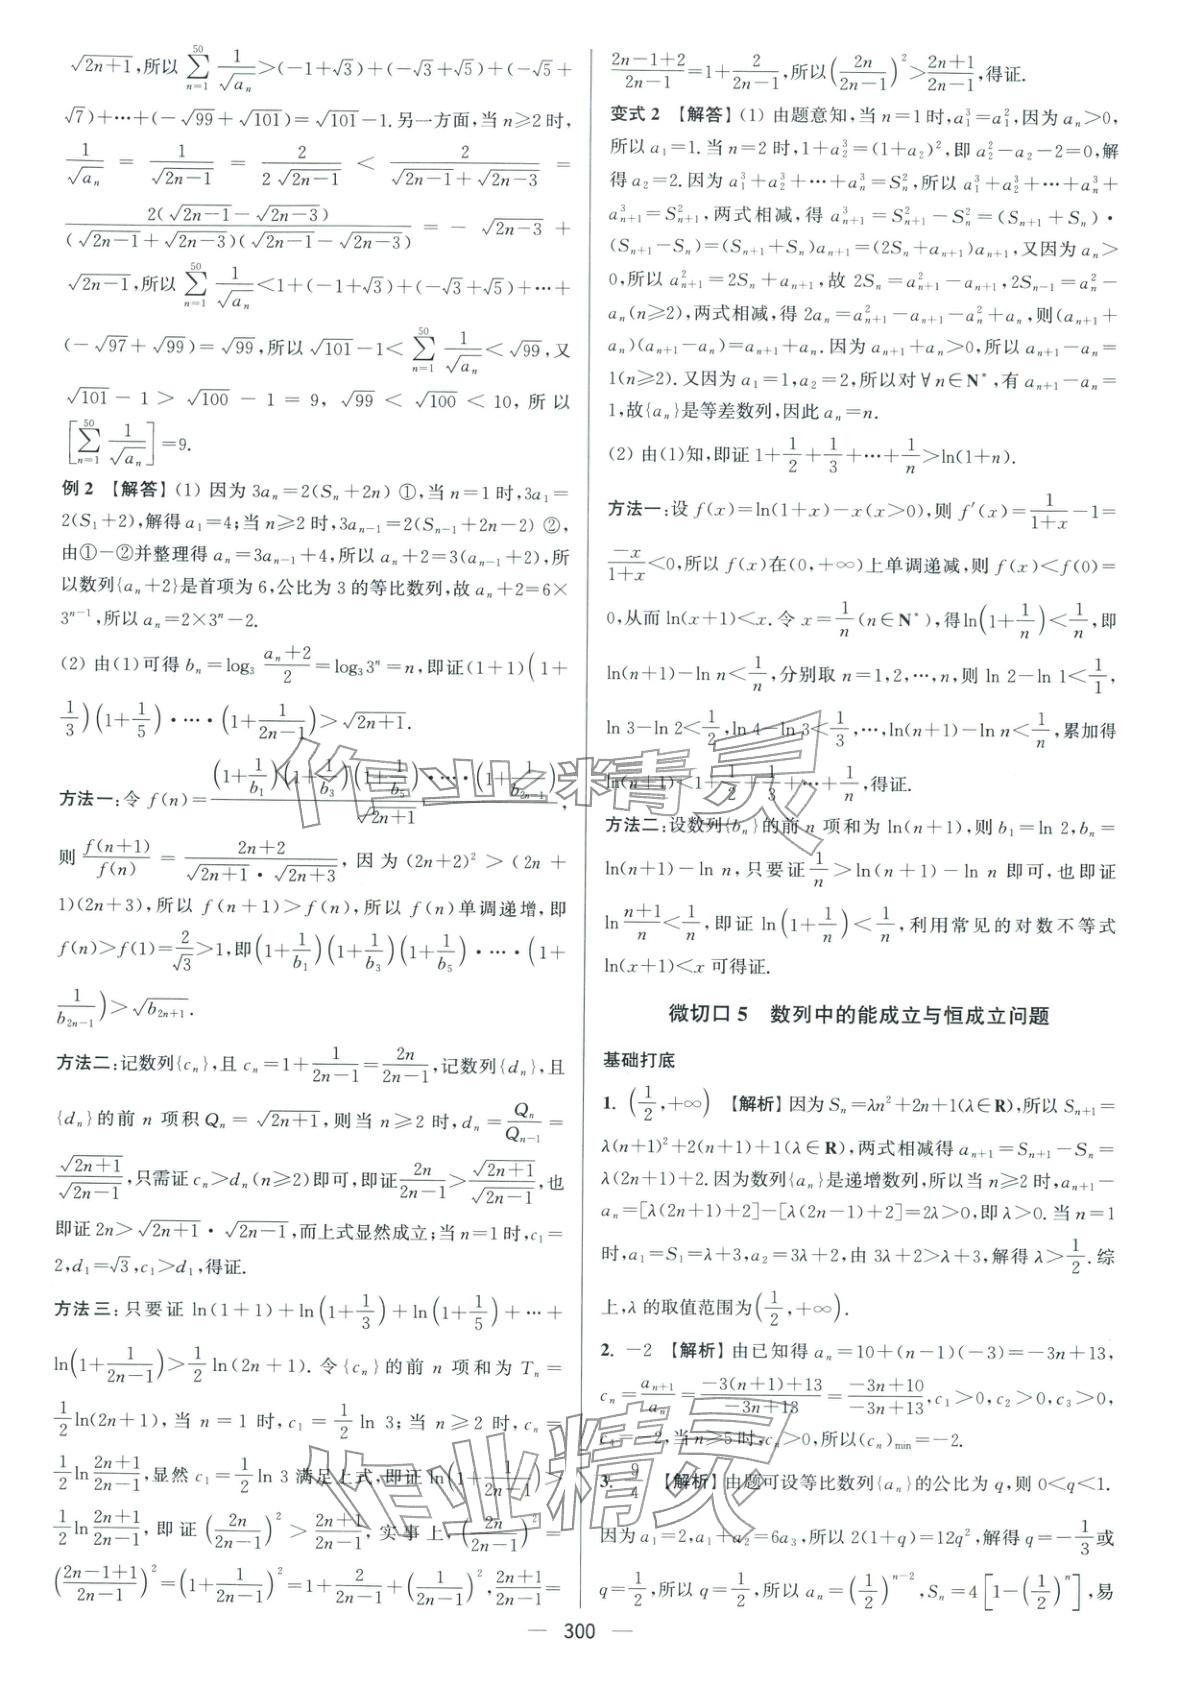 √(2n+1),所以 ∑_{n=1}^{50} 1/√a_n>(-1+√3)+(-√3+√5)+(-√5+
√7)+…+(-√99+√101)=√101-1.另一方面,当 n≥2 时,
1/√a_n = 1/√(2n-1) = 2/(2√(2n-1)) < 2/(√(2n-1)+√(2n-3)) =
2(√(2n-1)-√(2n-3))/((√(2n-1)+√(2n-3))(√(2n-1)-√(2n-3))) = -√(2n-3) +
√(2n-1),所以 ∑_{n=1}^{50} 1/√a_n<1+(-1+√3)+(-√3+√5)+…+
(-√97+√99)=√99,所以√101-1<∑_{n=1}^{50} 1/√a_n<√99,又
√101-1>√100-1=9,√99<√100<10,所以
[∑_{n=1}^{50} 1/√a_n]=9.
例 2 【解答】(1) 因为 3a_n=2(S_n+2n) ①,当 n=1 时,3a_1=
2(S_1+2),解得 a_1=4;当 n≥2 时,3a_{n-1}=2(S_{n-1}+2n-2) ②,
由①-②并整理得 a_n=3a_{n-1}+4,所以 a_n+2=3(a_{n-1}+2),所
以数列{a_n+2}是首项为 6,公比为 3 的等比数列,故 a_n+2=6×
3^{n-1},所以 a_n=2×3^n-2.
(2) 由(1)可得 b_n=log_3 (a_n+2)/2=log_3 3^n=n,即证(1+1)(1+
1/3)(1+1/5)·…·(1+1/(2n-1))>√(2n+1).
方法一:令 f(n)=(1+1/b_1)(1+1/b_3)(1+1/b_5)·…·(1+1/b_{2n-1})/√(2n+1),
则 f(n+1)/f(n) = (2n+2)/(√(2n+1)·√(2n+3)),因为(2n+2)^2>(2n+
1)(2n+3),所以 f(n+1)>f(n),所以 f(n)单调递增,即
f(n)>f(1)=2/√3>1,即(1+1/b_1)(1+1/b_3)(1+1/b_5)·…·(1+
1/b_{2n-1})>√b_{2n+1}.
方法二:记数列{c_n},且 c_n=1+1/(2n-1)=2n/(2n-1),记数列{d_n},且
{d_n}的前 n 项积 Q_n=√(2n+1),则当 n≥2 时,d_n=Q_n/Q_{n-1}=
√(2n+1)/√(2n-1),只需证 c_n>d_n(n≥2)即可,即证 2n/(2n-1)>√(2n+1)/√(2n-1),也
即证 2n>√(2n+1)·√(2n-1),而上式显然成立;当 n=1 时,c_1=
2,d_1=√3,c_1>d_1,得证.
方法三:只要证 ln(1+1)+ln(1+1/3)+ln(1+1/5)+…+
ln(1+1/(2n-1))>1/2 ln(2n+1).令{c_n}的前 n 项和为 T_n=
1/2 ln(2n+1),当 n=1 时,c_1=1/2 ln 3;当 n≥2 时,c_n=
1/2 ln (2n+1)/(2n-1),显然 c_1=1/2 ln 3 满足上式,即证 ln(1+1/(2n-1))>
1/2 ln (2n+1)/(2n-1),即证(2n/(2n-1))^2>(2n+1)/(2n-1),实事上,(2n/(2n-1))^2=
((2n-1+1)/(2n-1))^2=(1+1/(2n-1))^2=1+2/(2n-1)+(1/(2n-1))^2,(2n+1)/(2n-1)=
(2n-1+2)/(2n-1)=1+2/(2n-1),所以(2n/(2n-1))^2>(2n+1)/(2n-1),得证.
变式 2 【解答】(1) 由题意知,当 n=1 时,a_1^3=a_1^2,因为 a_n>0,
所以 a_1=1.当 n=2 时,1+a_2^3=(1+a_2)^2,即 a_2^2-a_2-2=0,解
得 a_2=2.因为 a_1^3+a_2^3+…+a_n^3=S_n^2,所以 a_1^3+a_2^3+…+a_n^3+
a_{n+1}^3=S_{n+1}^2,两式相减,得 a_{n+1}^3=S_{n+1}^2-S_n^2=(S_{n+1}+S_n)·
(S_{n+1}-S_n)=(S_{n+1}+S_n)a_{n+1}=(2S_n+a_{n+1})a_{n+1},又因为 a_n>
0,所以 a_{n+1}^2=2S_n+a_{n+1},故 2S_n=a_{n+1}^2-a_{n+1},2S_{n-1}=a_n^2-
a_n(n≥2),两式相减,得 2a_n=a_{n+1}^2-a_{n+1}-a_n^2+a_n,则(a_{n+1}+
a_n)(a_{n+1}-a_n)=a_{n+1}+a_n.因为 a_{n+1}+a_n>0,所以 a_{n+1}-a_n=
1(n≥2).又因为 a_1=1,a_2=2,所以对∀n∈N*,有 a_{n+1}-a_n=
1,故{a_n}是等差数列,因此 a_n=n.
(2) 由(1)知,即证 1+1/2+1/3+…+1/n>ln(1+n).
方法一:设 f(x)=ln(1+x)-x(x>0),则 f′(x)=1/(1+x)-1=
-x/(1+x)<0,所以 f(x)在(0,+∞)上单调递减,则 f(x)<f(0)=
0,从而 ln(x+1)<x.令 x=1/n(n∈N*),得 ln(1+1/n)<1/n,即
ln(n+1)-ln n<1/n,分别取 n=1,2,…,n,则 ln 2-ln 1<1/1,
ln 3-ln 2<1/2,ln 4-ln 3<1/3,…,ln(n+1)-ln n<1/n,累加得
ln(n+1)<1+1/2+1/3+…+1/n,得证.
方法二:设数列{b_n}的前 n 项和为 ln(n+1),则 b_1=ln 2,b_n=
ln(n+1)-ln n,只要证 1/n>ln(n+1)-ln n 即可,也即证
ln (n+1)/n<1/n,即证 ln(1+1/n)<1/n,利用常见的对数不等式
ln(x+1)<x 可得证.
微切口 5 数列中的能成立与恒成立问题
基础打底
1. (1/2,+∞) 【解析】因为 S_n=λn^2+2n+1(λ∈R),所以 S_{n+1}=
λ(n+1)^2+2(n+1)+1(λ∈R),两式相减得 a_{n+1}=S_{n+1}-S_n=
λ(2n+1)+2.因为数列{a_n}是递增数列,所以当 n≥2 时,a_{n+1}-
a_n=[λ(2n+1)+2]-[λ(2n-1)+2]=2λ>0,即 λ>0.当 n=1
时,a_1=S_1=λ+3,a_2=3λ+2,由 3λ+2>λ+3,解得 λ>1/2.综
上,λ 的取值范围为(1/2,+∞).
2. -2 【解析】由已知得 a_n=10+(n-1)(-3)=-3n+13,
c_n=a_{n+1}/a_n=(-3(n+1)+13)/(-3n+13)=(-3n+10)/(-3n+13),c_1>0,c_2>0,c_3>0,
c_4=-2,当 n≥5 时,c_n>0,所以(c_n)_min=-2.
3. 9/4 【解析】由题可设等比数列{a_n}的公比为 q,则 0<q<1.
因为 a_1=2,a_1+a_2=6a_3,所以 2(1+q)=12q^2,解得 q=-1/3或
q=1/2,所以 q=1/2,所以 a_n=(1/2)^{n-2},S_n=4[1-(1/2)^n],易
— 300 —
作业精灵
作业精灵